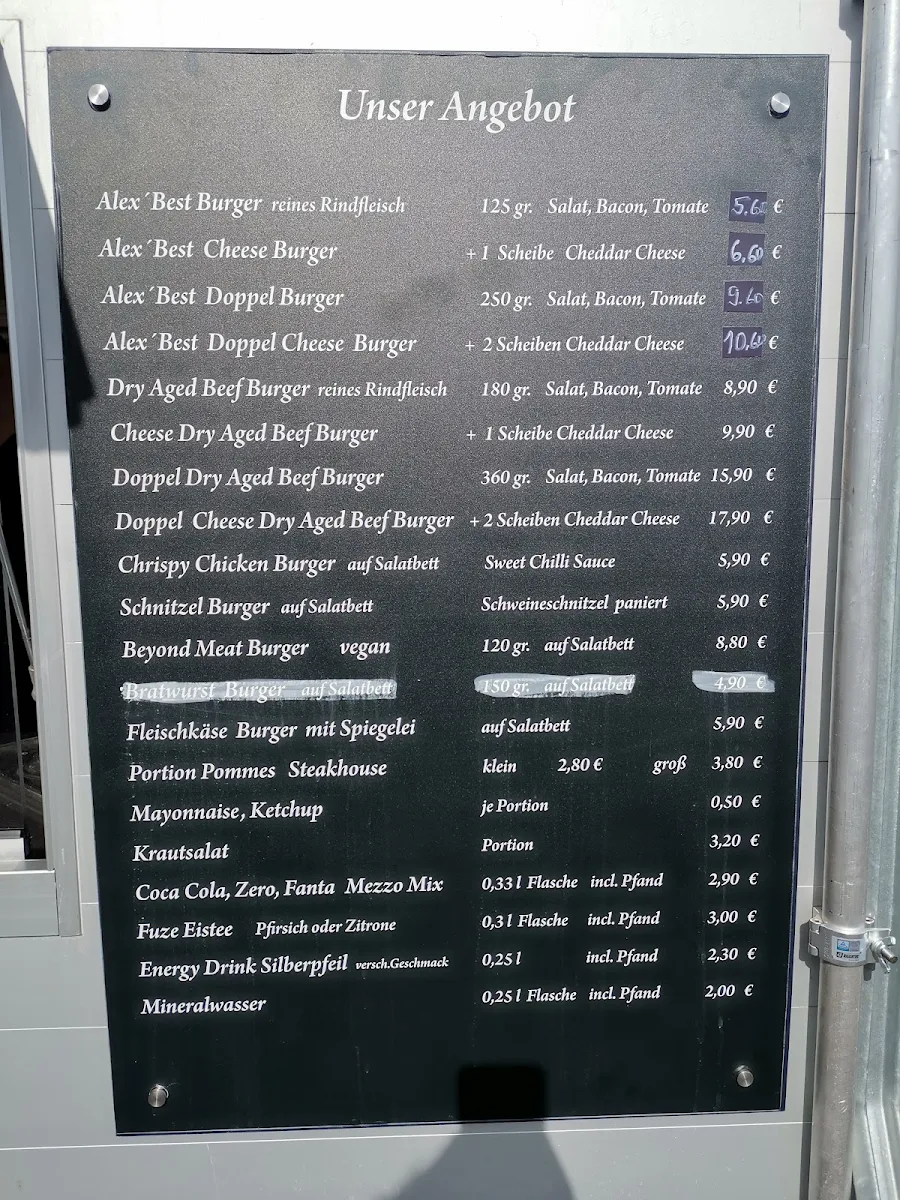 Unser Angebot
Alex´Best Burger reines Rindfleisch 125 gr. Salat, Bacon, Tomate 5.60 €
Alex´Best Cheese Burger + 1 Scheibe Cheddar Cheese 6.60 €
Alex´Best Doppel Burger 250 gr. Salat, Bacon, Tomate 9.60 €
Alex´Best Doppel Cheese Burger + 2 Scheiben Cheddar Cheese 10.60 €
Dry Aged Beef Burger reines Rindfleisch 180 gr. Salat, Bacon, Tomate 8,90 €
Cheese Dry Aged Beef Burger + 1 Scheibe Cheddar Cheese 9,90 €
Doppel Dry Aged Beef Burger 360 gr. Salat, Bacon, Tomate 15,90 €
Doppel Cheese Dry Aged Beef Burger + 2 Scheiben Cheddar Cheese 17,90 €
Chrispy Chicken Burger auf Salatbett Sweet Chilli Sauce 5,90 €
Schnitzel Burger auf Salatbett Schweineschnitzel paniert 5,90 €
Beyond Meat Burger vegan 120 gr. auf Salatbett 8,80 €
Bratwurst Burger auf Salatbett 150 gr. auf Salatbett 4,90 €
Fleischkäse Burger mit Spiegelei auf Salatbett 5,90 €
Portion Pommes Steakhouse klein 2,80 € groß 3,80 €
Mayonnaise, Ketchup je Portion 0,50 €
Krautsalat Portion 3,20 €
Coca Cola, Zero, Fanta Mezzo Mix 0,33 l Flasche incl. Pfand 2,90 €
Fuze Eistee Pfirsich oder Zitrone 0,3 l Flasche incl. Pfand 3,00 €
Energy Drink Silberpfeil versch.Geschmack 0,25 l incl. Pfand 2,30 €
Mineralwasser 0,25 l Flasche incl. Pfand 2,00 €